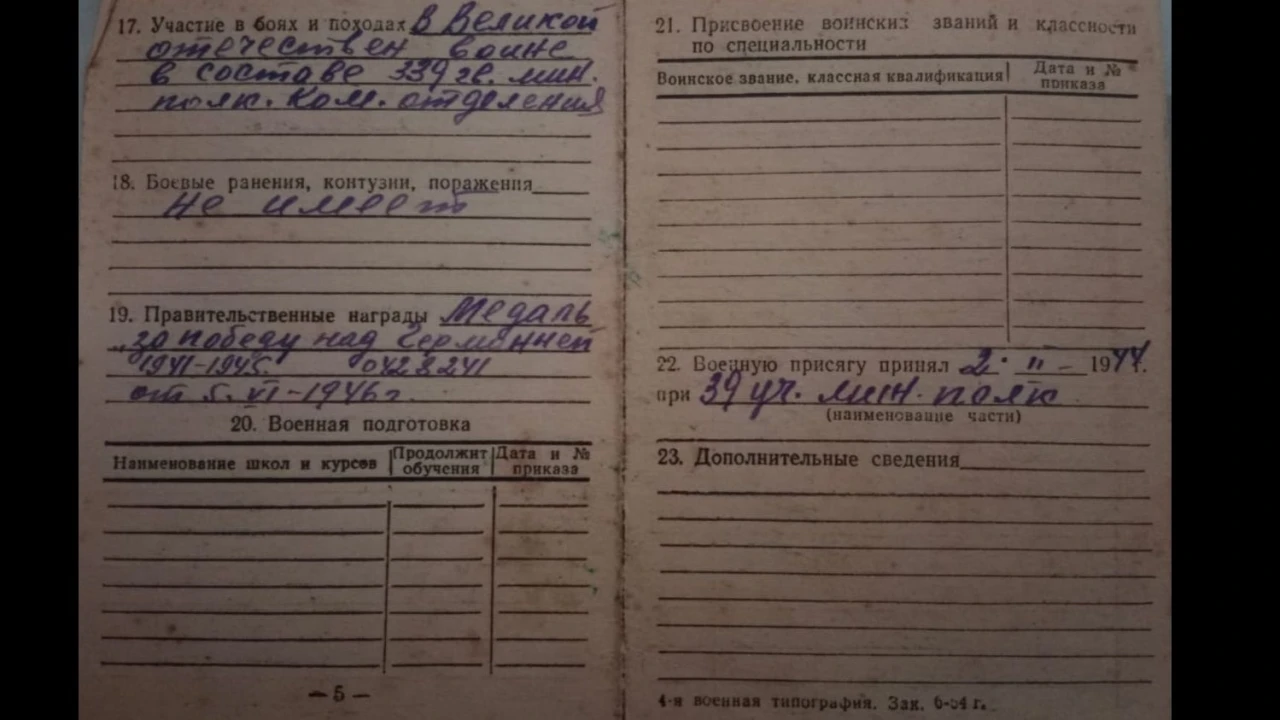 17. Участие в боях и походах В Великой
отечествен войне
в составе 339 гв. мин.
полк. Ком. отделения
18. Боевые ранения, контузии, поражения
не имеет
19. Правительственные награды Медаль
„за победу над Германией
1941-1945г. 0428241
от 5.VI-1946г.
20. Военная подготовка
Наименование школ и курсов
Продолжит обучения
Дата и № приказа
— 5 —
21. Присвоение воинских званий и классности
по специальности
Воинское звание, классная квалификация
Дата и № приказа
22. Военную присягу принял 2. II - 1944г.
при 39 уч. мин. полк
(наименование части)
23. Дополнительные сведения
4-я военная типография. Зак. 6-54 г.